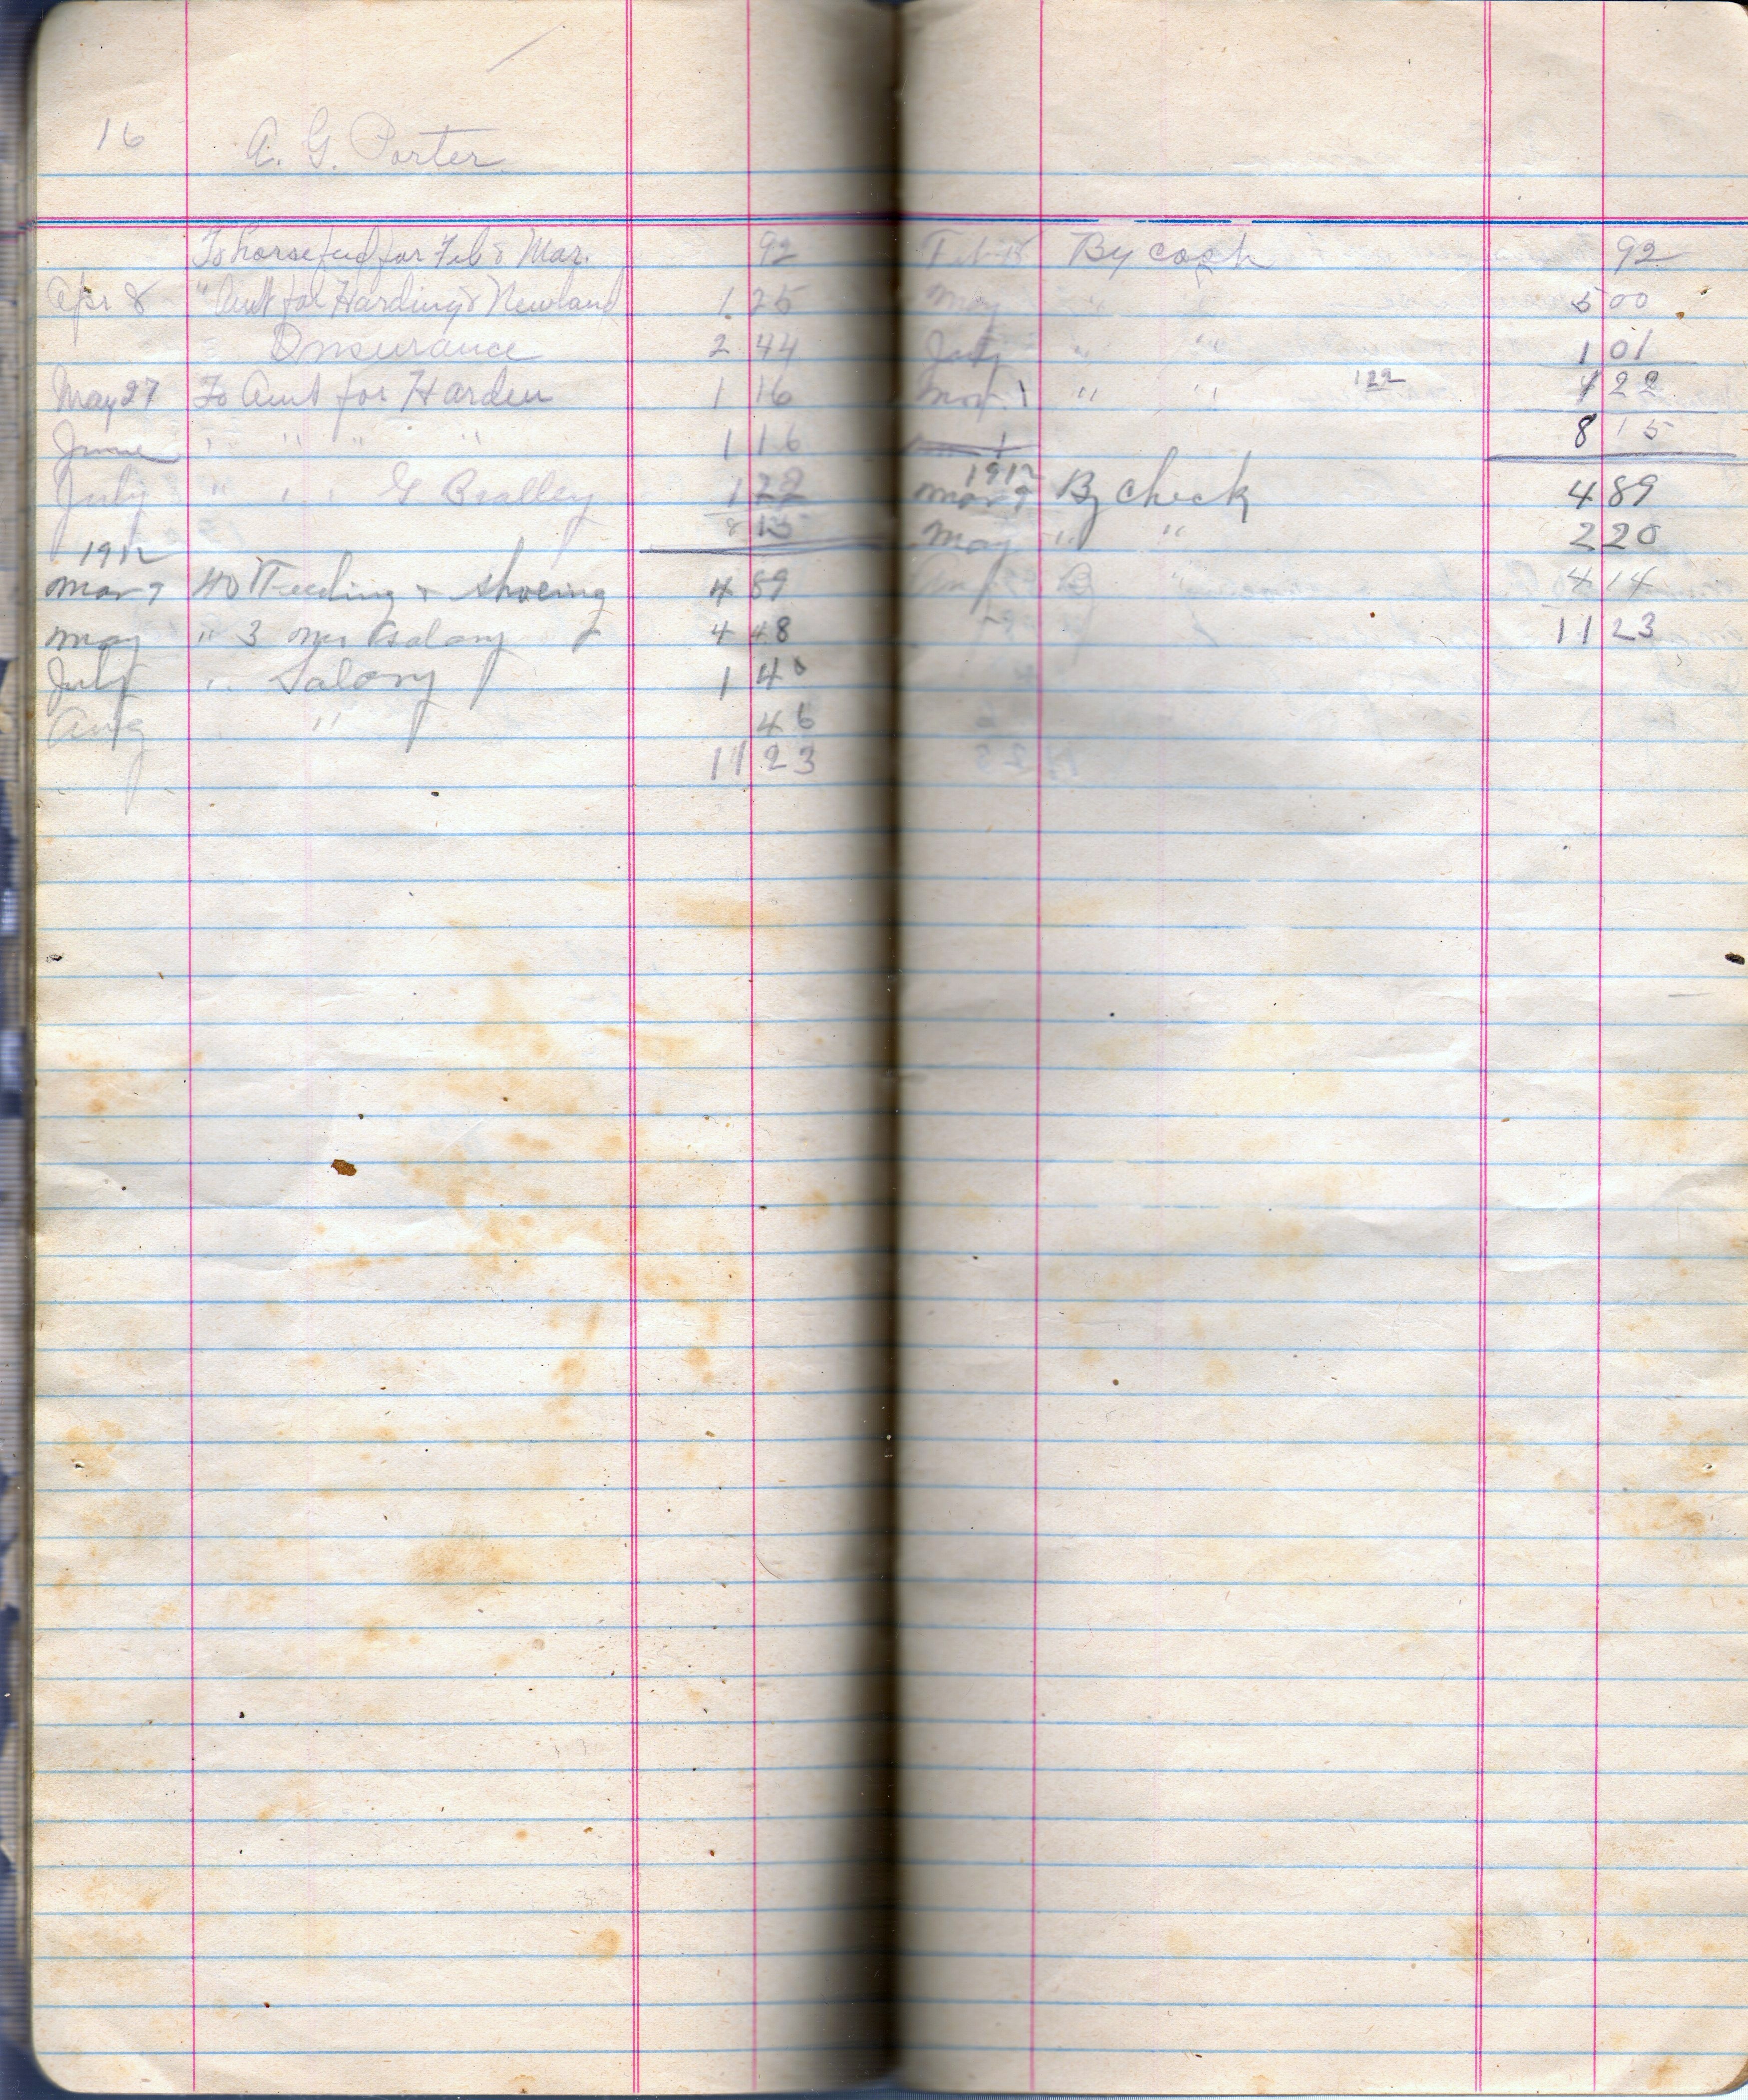 16 A. G. Porter
To horse feed for Feb & Mar. 92
Apr 8 " Amt for Harding & Newland 1 25
" Insurance 2 44
May 27 To Amt for Harden 1 16
June " " " " 1 16
July " " " G Bralley 1 22
8 15
1912
Mar 7 to Feeding & Shoeing 4 89
May " 3 salary 4 48
July " Salary 1 40
Aug " 46
11 23
Feb 15 By cash 92
May " " 5 00
July " " 1 01
Nov. 1 " " 1 22 1 22
8 15
1912
Mar 9 By check 4 89
May " " 2 20
By " 4 14
11 23